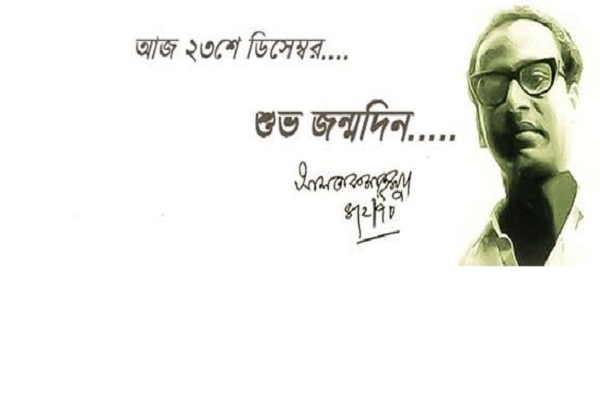 আজ ২৩শে ডিসেম্বর....
শুভ জন্মদিন.....
৪/২/৭৮